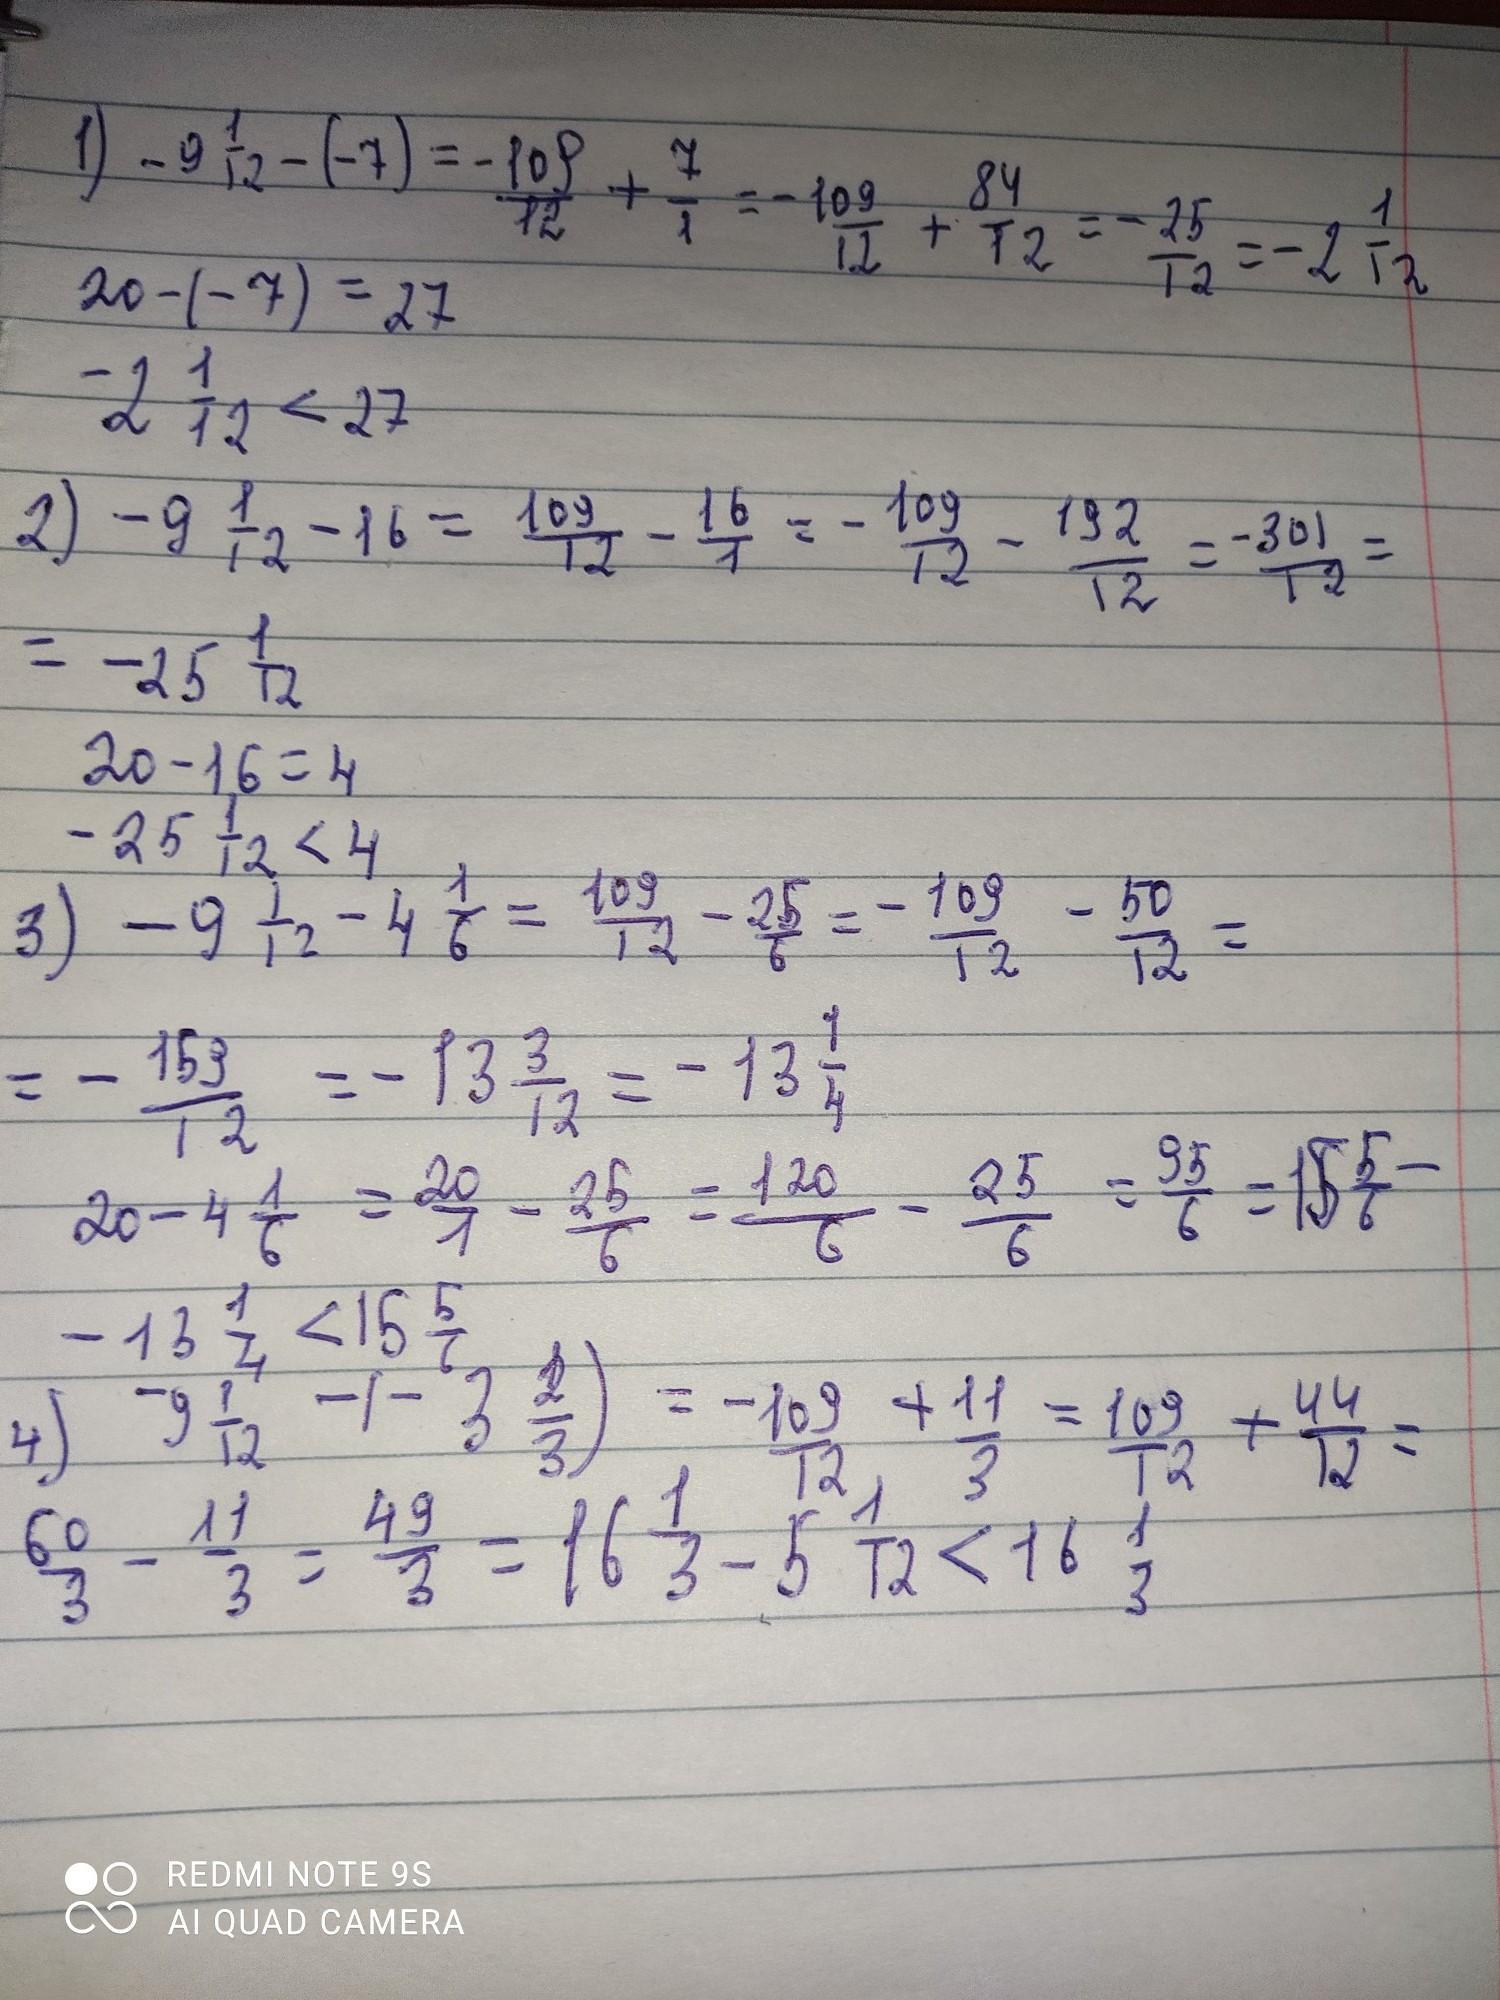 1) -9 1/12 - (-7) = -109/12 + 7/1 = -109/12 + 84/12 = -25/12 = -2 1/12
20 - (-7) = 27
-2 1/12 < 27
2) -9 1/12 - 16 = 109/12 - 16/1 = -109/12 - 192/12 = -301/12 =
= -25 1/12
20 - 16 = 4
-25 1/12 < 4
3) -9 1/12 - 4 1/6 = 109/12 - 25/6 = -109/12 - 50/12 =
= -159/12 = -13 3/12 = -13 1/4
20 - 4 1/6 = 20/1 - 25/6 = 120/6 - 25/6 = 95/6 = 15 5/6 -
-13 1/4 < 15 5/6
4) -9 1/12 - (- 3 2/3) = -109/12 + 11/3 = 109/12 + 44/12 =
60/3 - 11/3 = 49/3 = 16 1/3 - 5 1/12 < 16 1/3
REDMI NOTE 9S
AI QUAD CAMERA